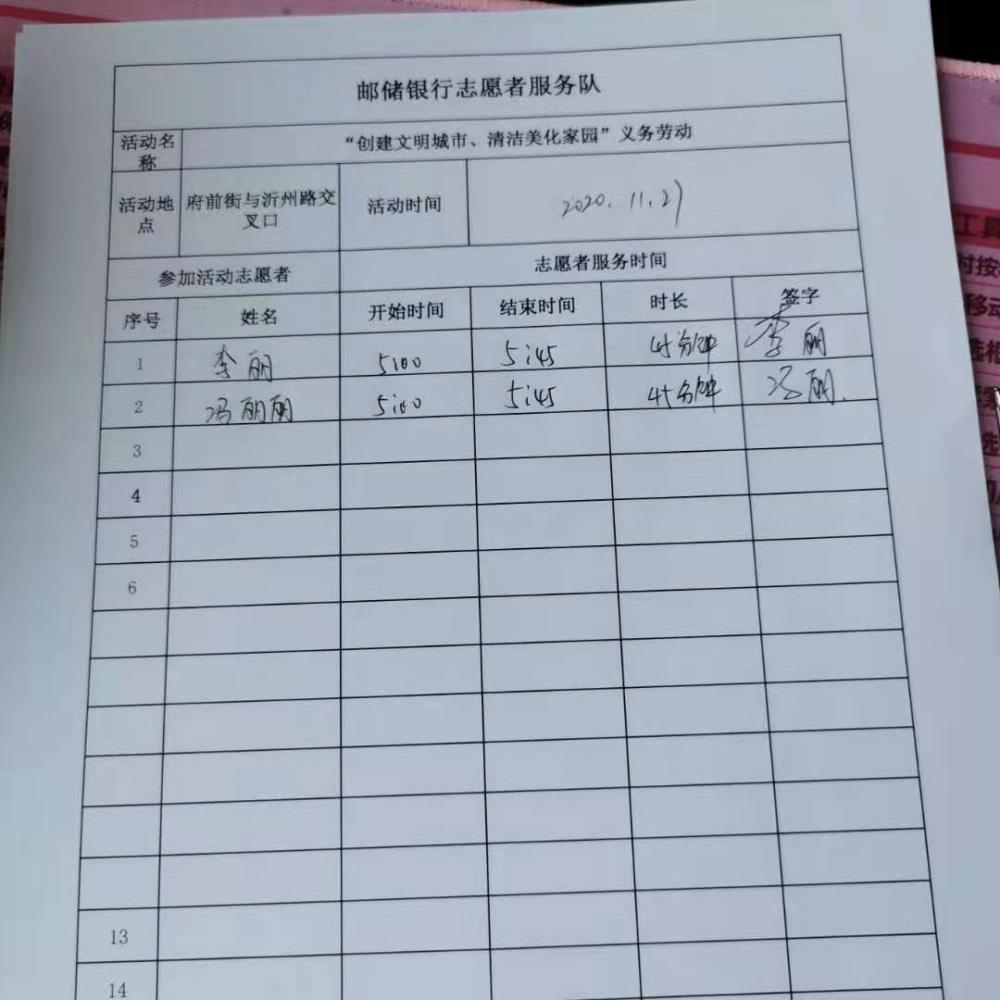 邮储银行志愿者服务队
活动名称 “创建文明城市、清洁美化家园”义务劳动
活动地点 府前街与沂州路交叉口 活动时间 2020.11.27
参加活动志愿者 志愿者服务时间
序号 姓名 开始时间 结束时间 时长 签字
1 李丽 5:00 5:45 45分钟 李丽
2 冯丽丽 5:00 5:45 45分钟 冯丽
3
4
5
6
13
14
工具
时按
移动
选